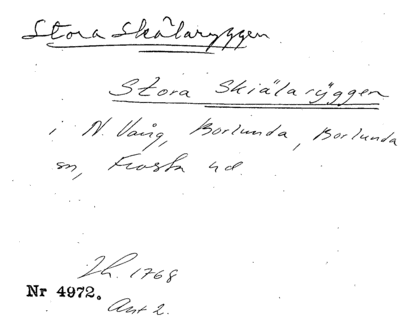 Stora Skälaryggen
Stora Skiälarÿggen
i N. Vång, Borlunda, Borlunda
sn, Frosta hd.
Lh. 1768
Nr 4972.
Akt 2.